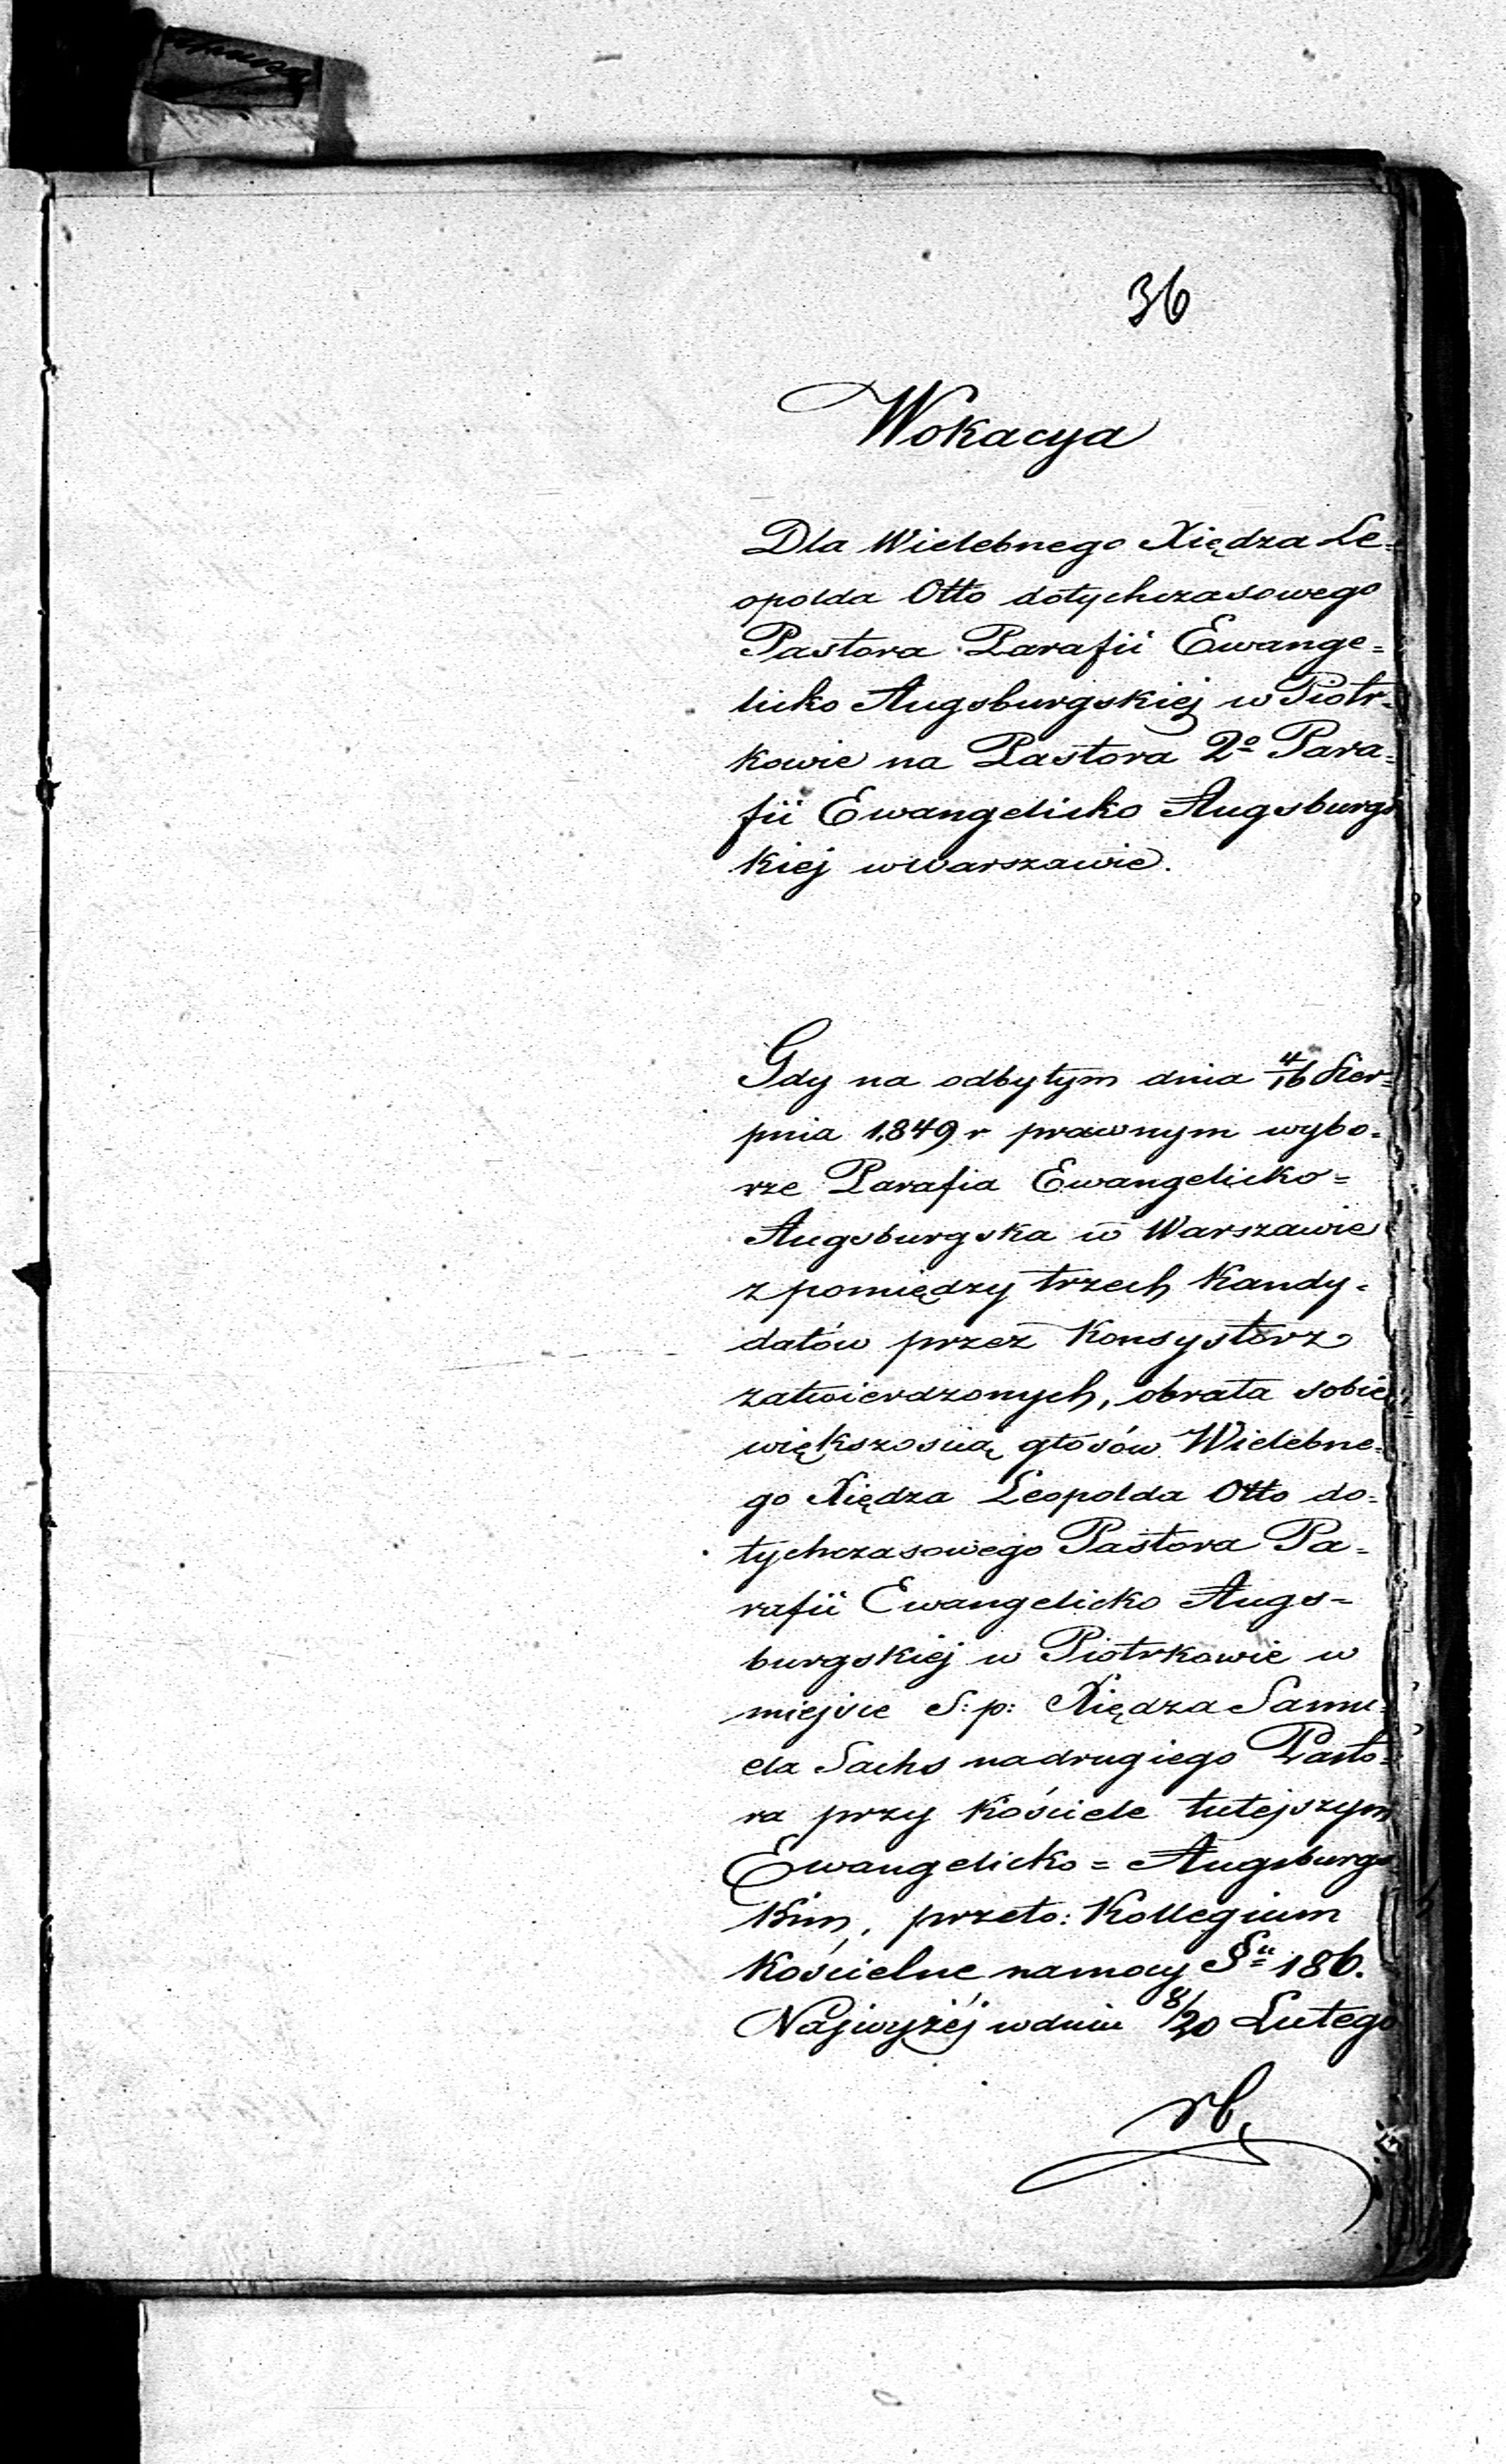 36
Wokacya
Dla Wielebnego Xiędza Le=
opolda Otto dotychczasowego
Pastora Parafii Ewange=
licko Augsburgskiej w Piotr=
kowie na Pastora 2º Para=
fii Ewangelicko Augsburgs
kiej w Warszawie.
Gdy na odbytym dnia 4/16 Sier=
pnia 1849 r prawnym wybo=
rze Parafia Ewangelicko=
Augsburgska w Warszawie
z pomiędzy trzech Kandy=
datów przez Konsystorz
zatwierdzonych, obrała sobie
większością głosów Wielebne=
go Xiędza Leopolda Otto do=
tychczasowego Pastora Pa=
rafii Ewangelicko Augs=
burgskiej w Piotrkowie w
miejsce S: p: Xiędza Samu=
ela Sachs na drugiego Pasto=
ra przy Kościele tutejszym
Ewangelicko=Augsburgs
kim, przeto: Kollegium
Kościelne na mocy §u 186.
Najwyżej w dniu 8/20 Lutego